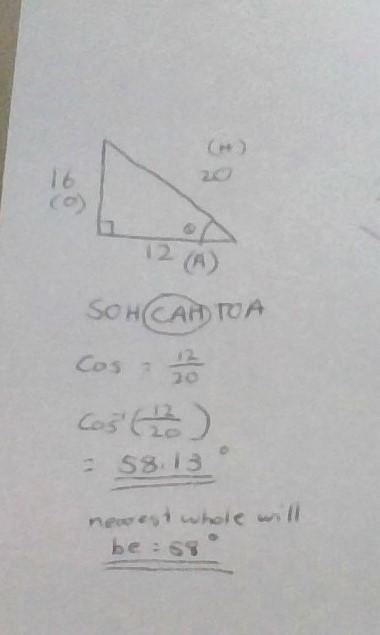 (H)
16 20
(O)
θ
12 (A)
SOH CAH TOA
Cos = 12/20
Cos⁻¹(12/20)
= 58.13°
nearest whole will
be = 58°